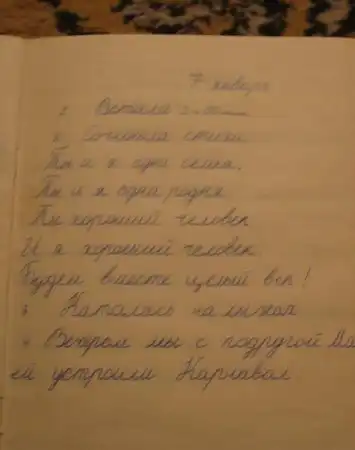 7 января
Встала
Сочинила стихи
Ты и я одна семья.
Ты и я одна родня
Ты хороший человек
И я хороший человек
Будем вместе целый век!
Каталась на лыжах
Вечером мы с подругой Да
ей устроили Карнавал